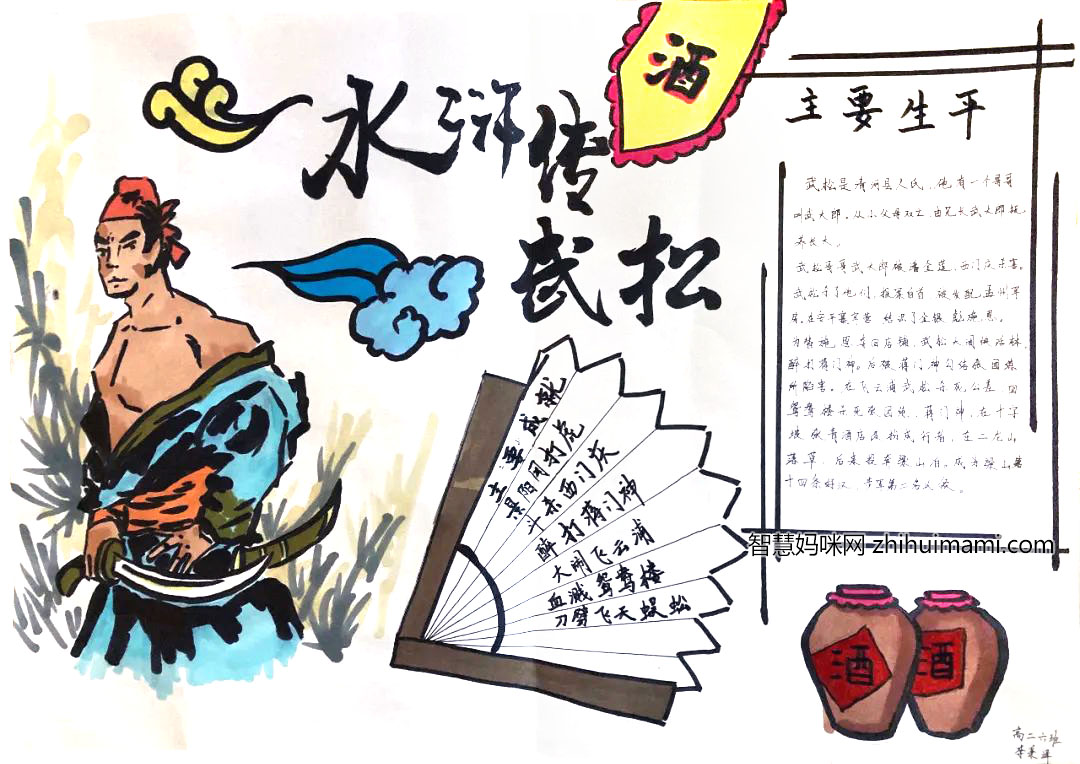 酒
水浒传
武松
主要生平
武松是清河县人氏，他有一个哥哥
叫武大郎。从小父母双亡，由兄长武大郎抚
养长大。
武松哥哥武大郎被潘金莲、西门庆杀害，
武松杀了他们，投案自首，被发配孟州牢
城，在安平寨牢营，结识了金眼彪施恩。
为替施恩夺回店铺，武松大闹快活林，
醉打蒋门神。后被蒋门神勾结张团练
所陷害。在飞云浦武松杀死公差，回
鸳鸯楼杀死张团练、蒋门神，在十字
坡张青酒店改扮成行者，在二龙山
落草，后来投奔梁山泊，成为梁山第
十四条好汉，步军第二名头领。
主要成就
景阳冈打虎
斗杀西门庆
醉打蒋门神
大闹飞云浦
血溅鸳鸯楼
刀劈飞天蜈蚣
智慧妈咪网 zhihuimami.com
酒
酒
高二六班